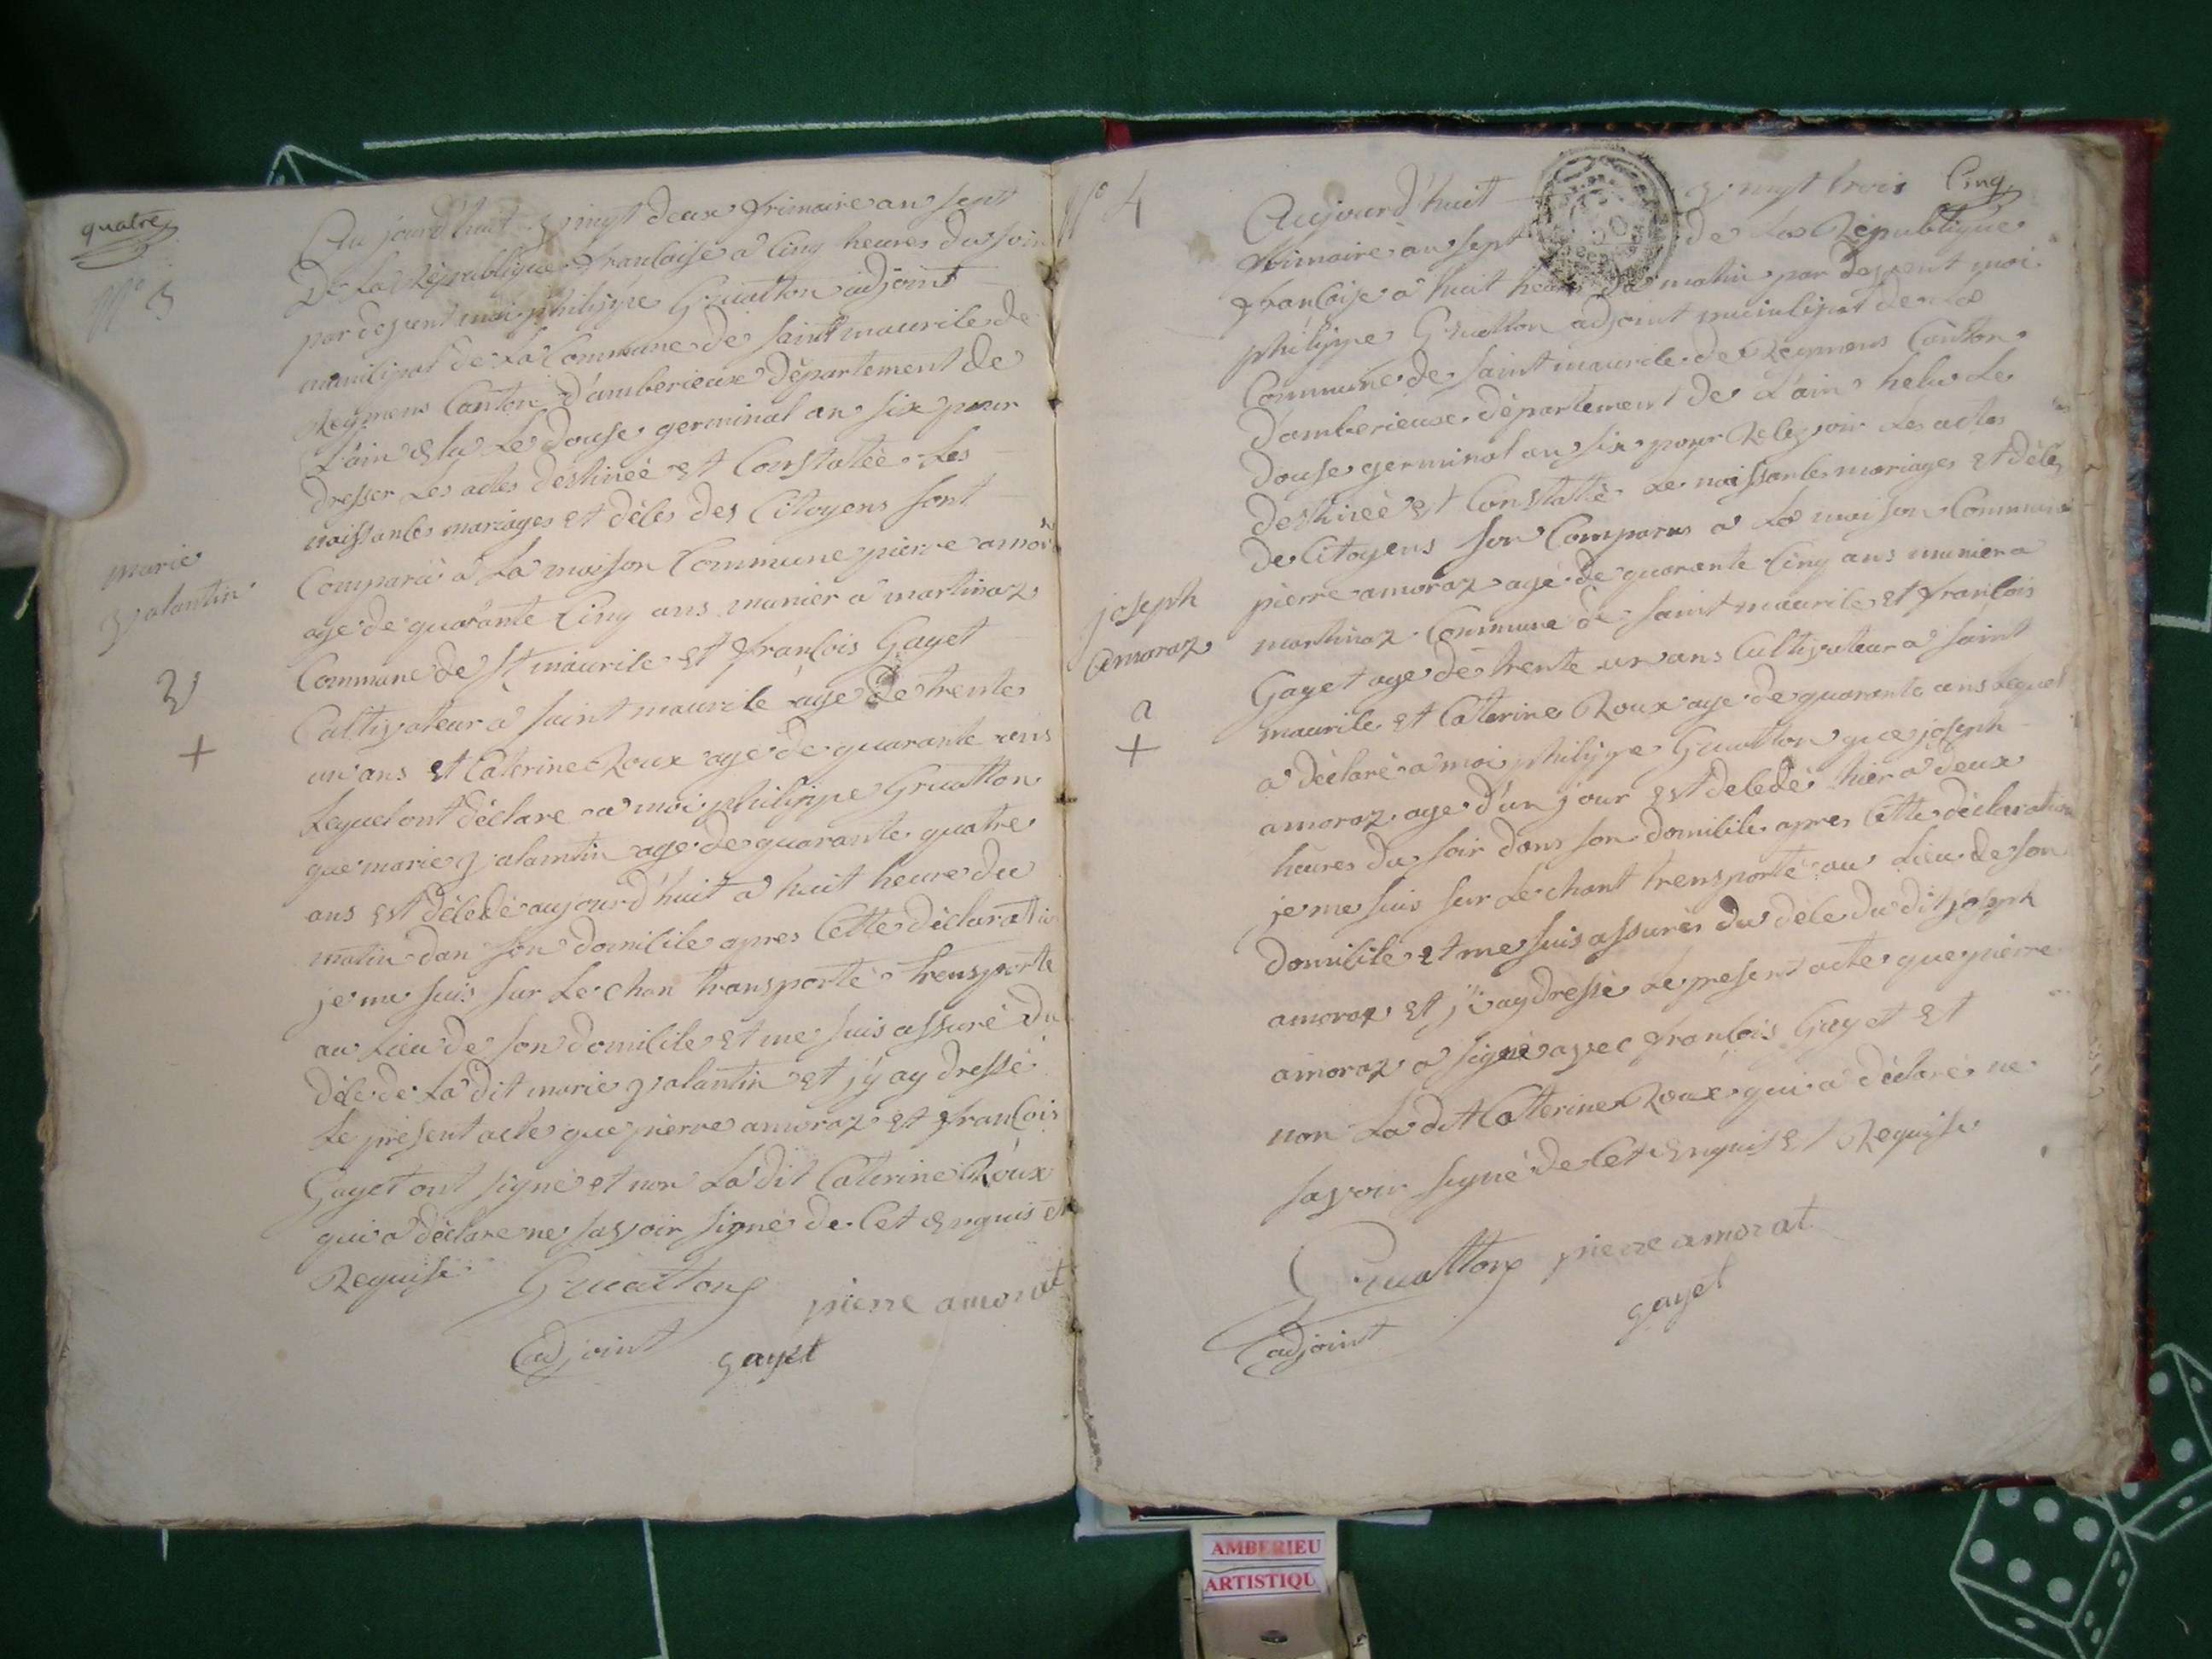 quatre
N° 3
Au jourd'huit vingt deux frimaire an sept
De La Republique francaise a cinq heures du soir
par devent moi philippe Gruatton adjoint
municipat de La Commune de saint maurile de
Reymens Canton d'amberieux Département de
L'ain Elu Le Douse germinal an six pour
dresser Les actes destineé et Constateé Les
naissances mariages et déces des Citoyens sont
Comparú a La maison Commune pierre amoraz
age de quarante Cinq ans munier a martinaz
Commune de St maurile et francois Gayet
Cultivateur a saint maurile age de trente
un ans et Caterine Roux age de quarante ans
Lequel ont déclare a moi philippe Gruatton
que marie valantin age de quarante quatre
ans est décedé aujourd'huit a huit heure du
matin dan son domicile apres Cette déclaratio
je me suis sur Le chan transporté trensporte
au Lieu de son domicile et me suis assuré du
déce de La dit marie valantin et j'y ay dressé
Le present acte que pierre amoraz et francois
Gayet ont signé et non La dit Caterine Roux
qui a déclare ne savoir signé de Cet Enquis et
Requise
Gruatton
pierre amorat
adjoint
gayet
marie
valantin
+
N° 4
Cinq
Aujourd'huit vingt trois
frimaire an sept de La Republique
francaise a huit heures du matin par devent moi
philippe Gruatton adjoint municipat de La
Commune de saint maurile de Reymens Canton
D'amberieux département de L'ain helu Le
Douse germinal an six pour Recevoir Les actes
destineé et Constatté Le naissances mariages et déces
de Citoyens son Comparus a La maison Commune
pierre amoraz agé de quarante Cinq ans munier a
martinaz Commune de saint maurile et francois
Gayet age de trente un ans Cultivateur a saint
maurile et Caterine Roux age de quarante ans Lequel
a déclaré a moi philippe Gruatton que joseph
amoraz age d'un jour est decedé hier a deux
heures du soir dans son domicile apres Cette déclaration
je me suis sur Le chant trensporté au Lieu de son
domicile et me suis assurés du déce du dit joseph
amoraz et j'i ay dressé Le present acte que pierre
amoraz a signé avec francois Gayet et
non La dit Catterine Roux qui a déclaré ne
savoir signé de Cet Enquis et Requise
Gruatton pierre amorat
gayet
adjoint
joseph
amoraz
a
+
AMBERIEU
ARTISTIQU